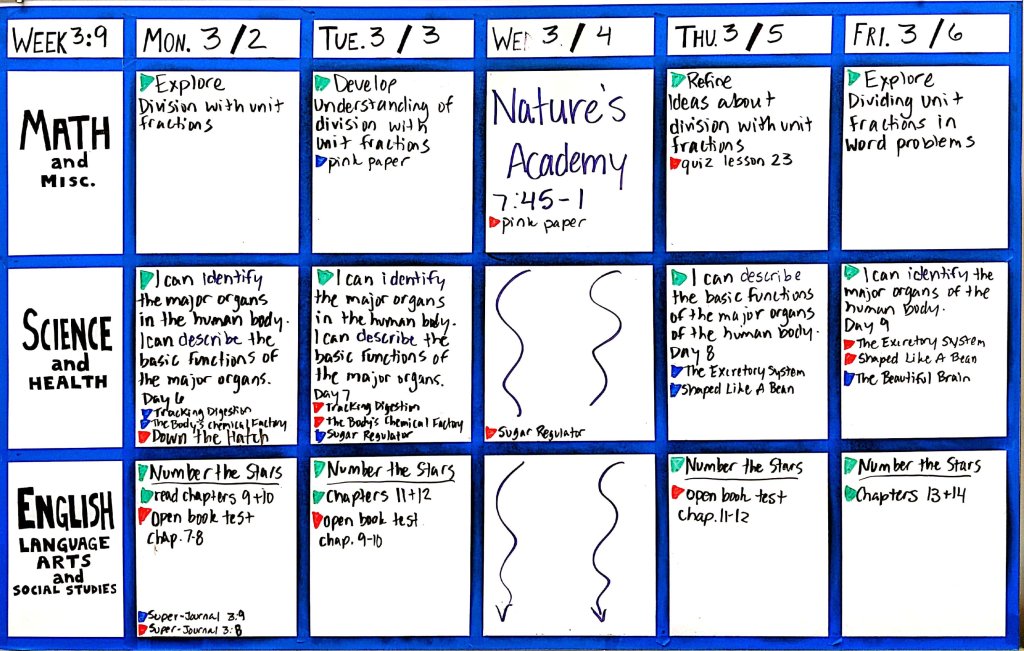 WEEK 3:9
MON. 3/2
TUE. 3/3
WED 3/4
THU. 3/5
FRI. 3/6
MATH
and
MISC.
Explore
Division with unit
fractions
Develop
Understanding of
division with
unit fractions
pink paper
Nature's
Academy
7:45-1
pink paper
Refine
Ideas about
division with unit
fractions
quiz lesson 23
Explore
Dividing unit
fractions in
word problems
SCIENCE
and
HEALTH
I can identify
the major organs
in the human body.
I can describe the
basic functions of
the major organs.
Day 6
Tracking Digestion
The Body's Chemical Factory
Down the Hatch
I can identify
the major organs
in the human body.
I can describe the
basic functions of
the major organs.
Day 7
Tracking Digestion
The Body's Chemical Factory
Sugar Regulator
Sugar Regulator
I can describe
the basic functions
of the major organs
of the human body.
Day 8
The Excretory System
Shaped Like A Bean
I can identify the
major organs of the
human body.
Day 9
The Excretory System
Shaped Like A Bean
The Beautiful Brain
ENGLISH
LANGUAGE
ARTS
and
SOCIAL STUDIES
Number the Stars
read chapters 9+10
Open book test
chap. 7-8
Super-Journal 3:9
Super-Journal 3:8
Number the Stars
Chapters 11+12
open book test
chap. 9-10
Number the Stars
open book test
chap. 11-12
Number the Stars
Chapters 13+14